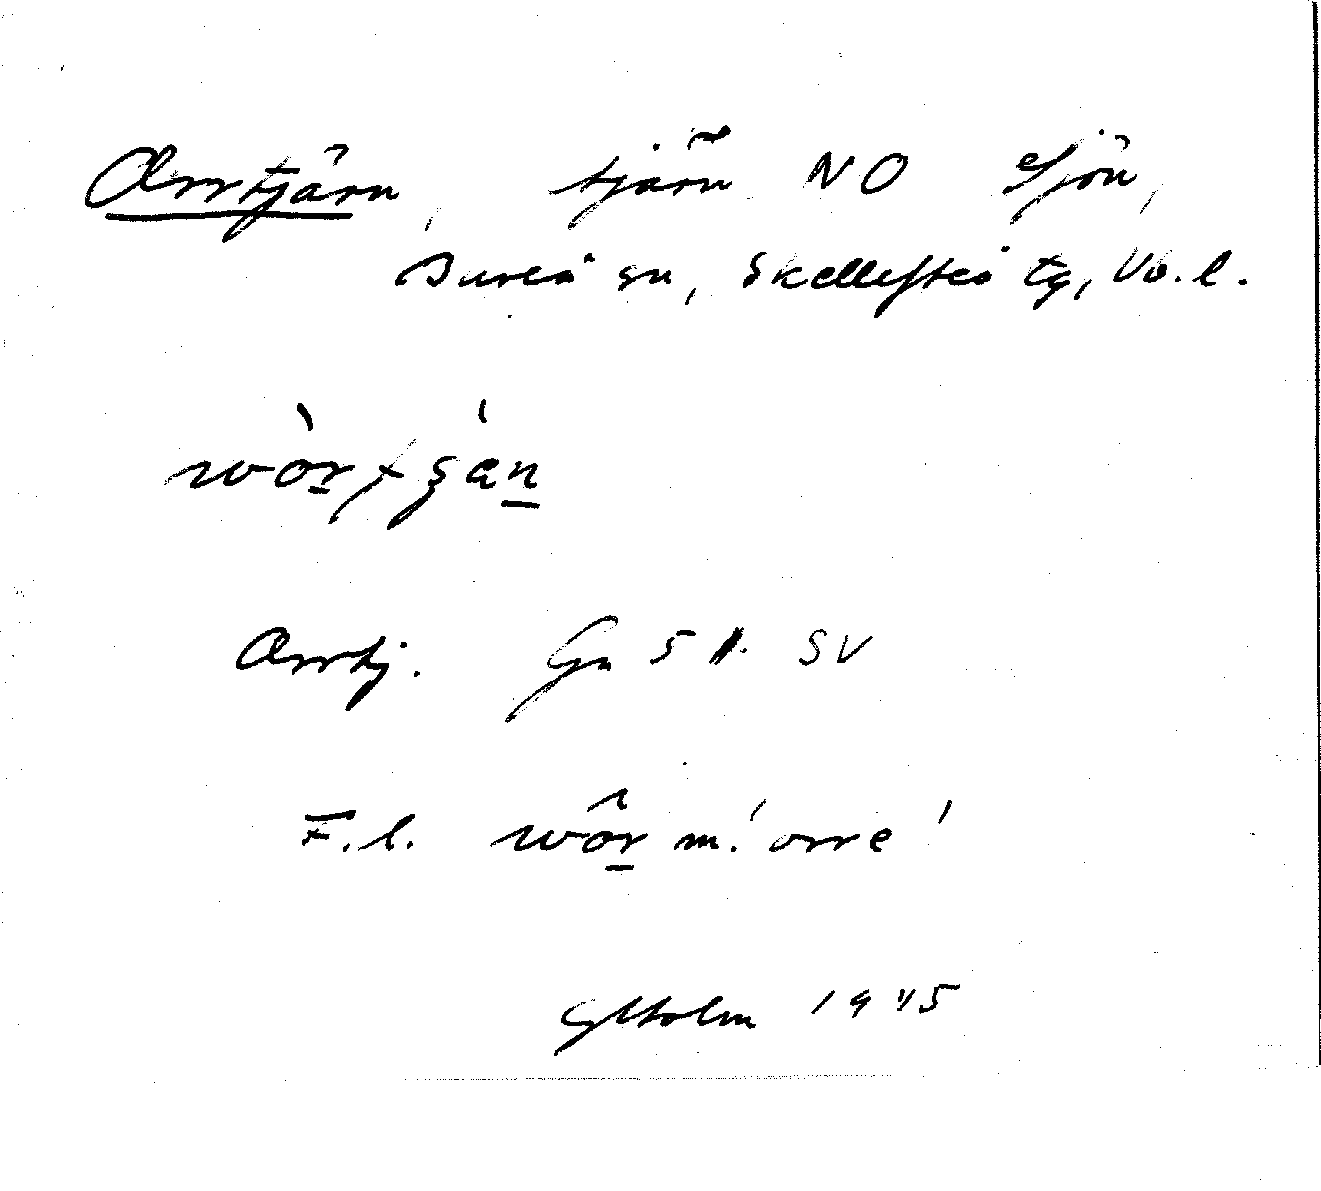 Orrtjärn, tjärn NO Sjön,
Bureå sn, Skellefteå tg, Vb. l.
Orrtj. Gn 5 h. SV
F.l. wôr m. 'orre'
GHolm 1945